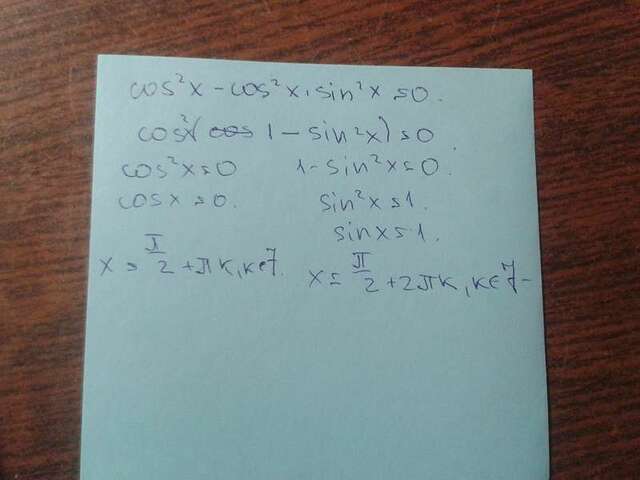 cos²x - cos²x · sin²x = 0.
cos²x(cos 1 - sin²x) = 0
cos²x = 0 1 - sin²x = 0.
cosx = 0. sin²x = 1.
sinx = 1.
x = π/2 + πk, k∈Z. x = π/2 + 2πk, k∈Z -